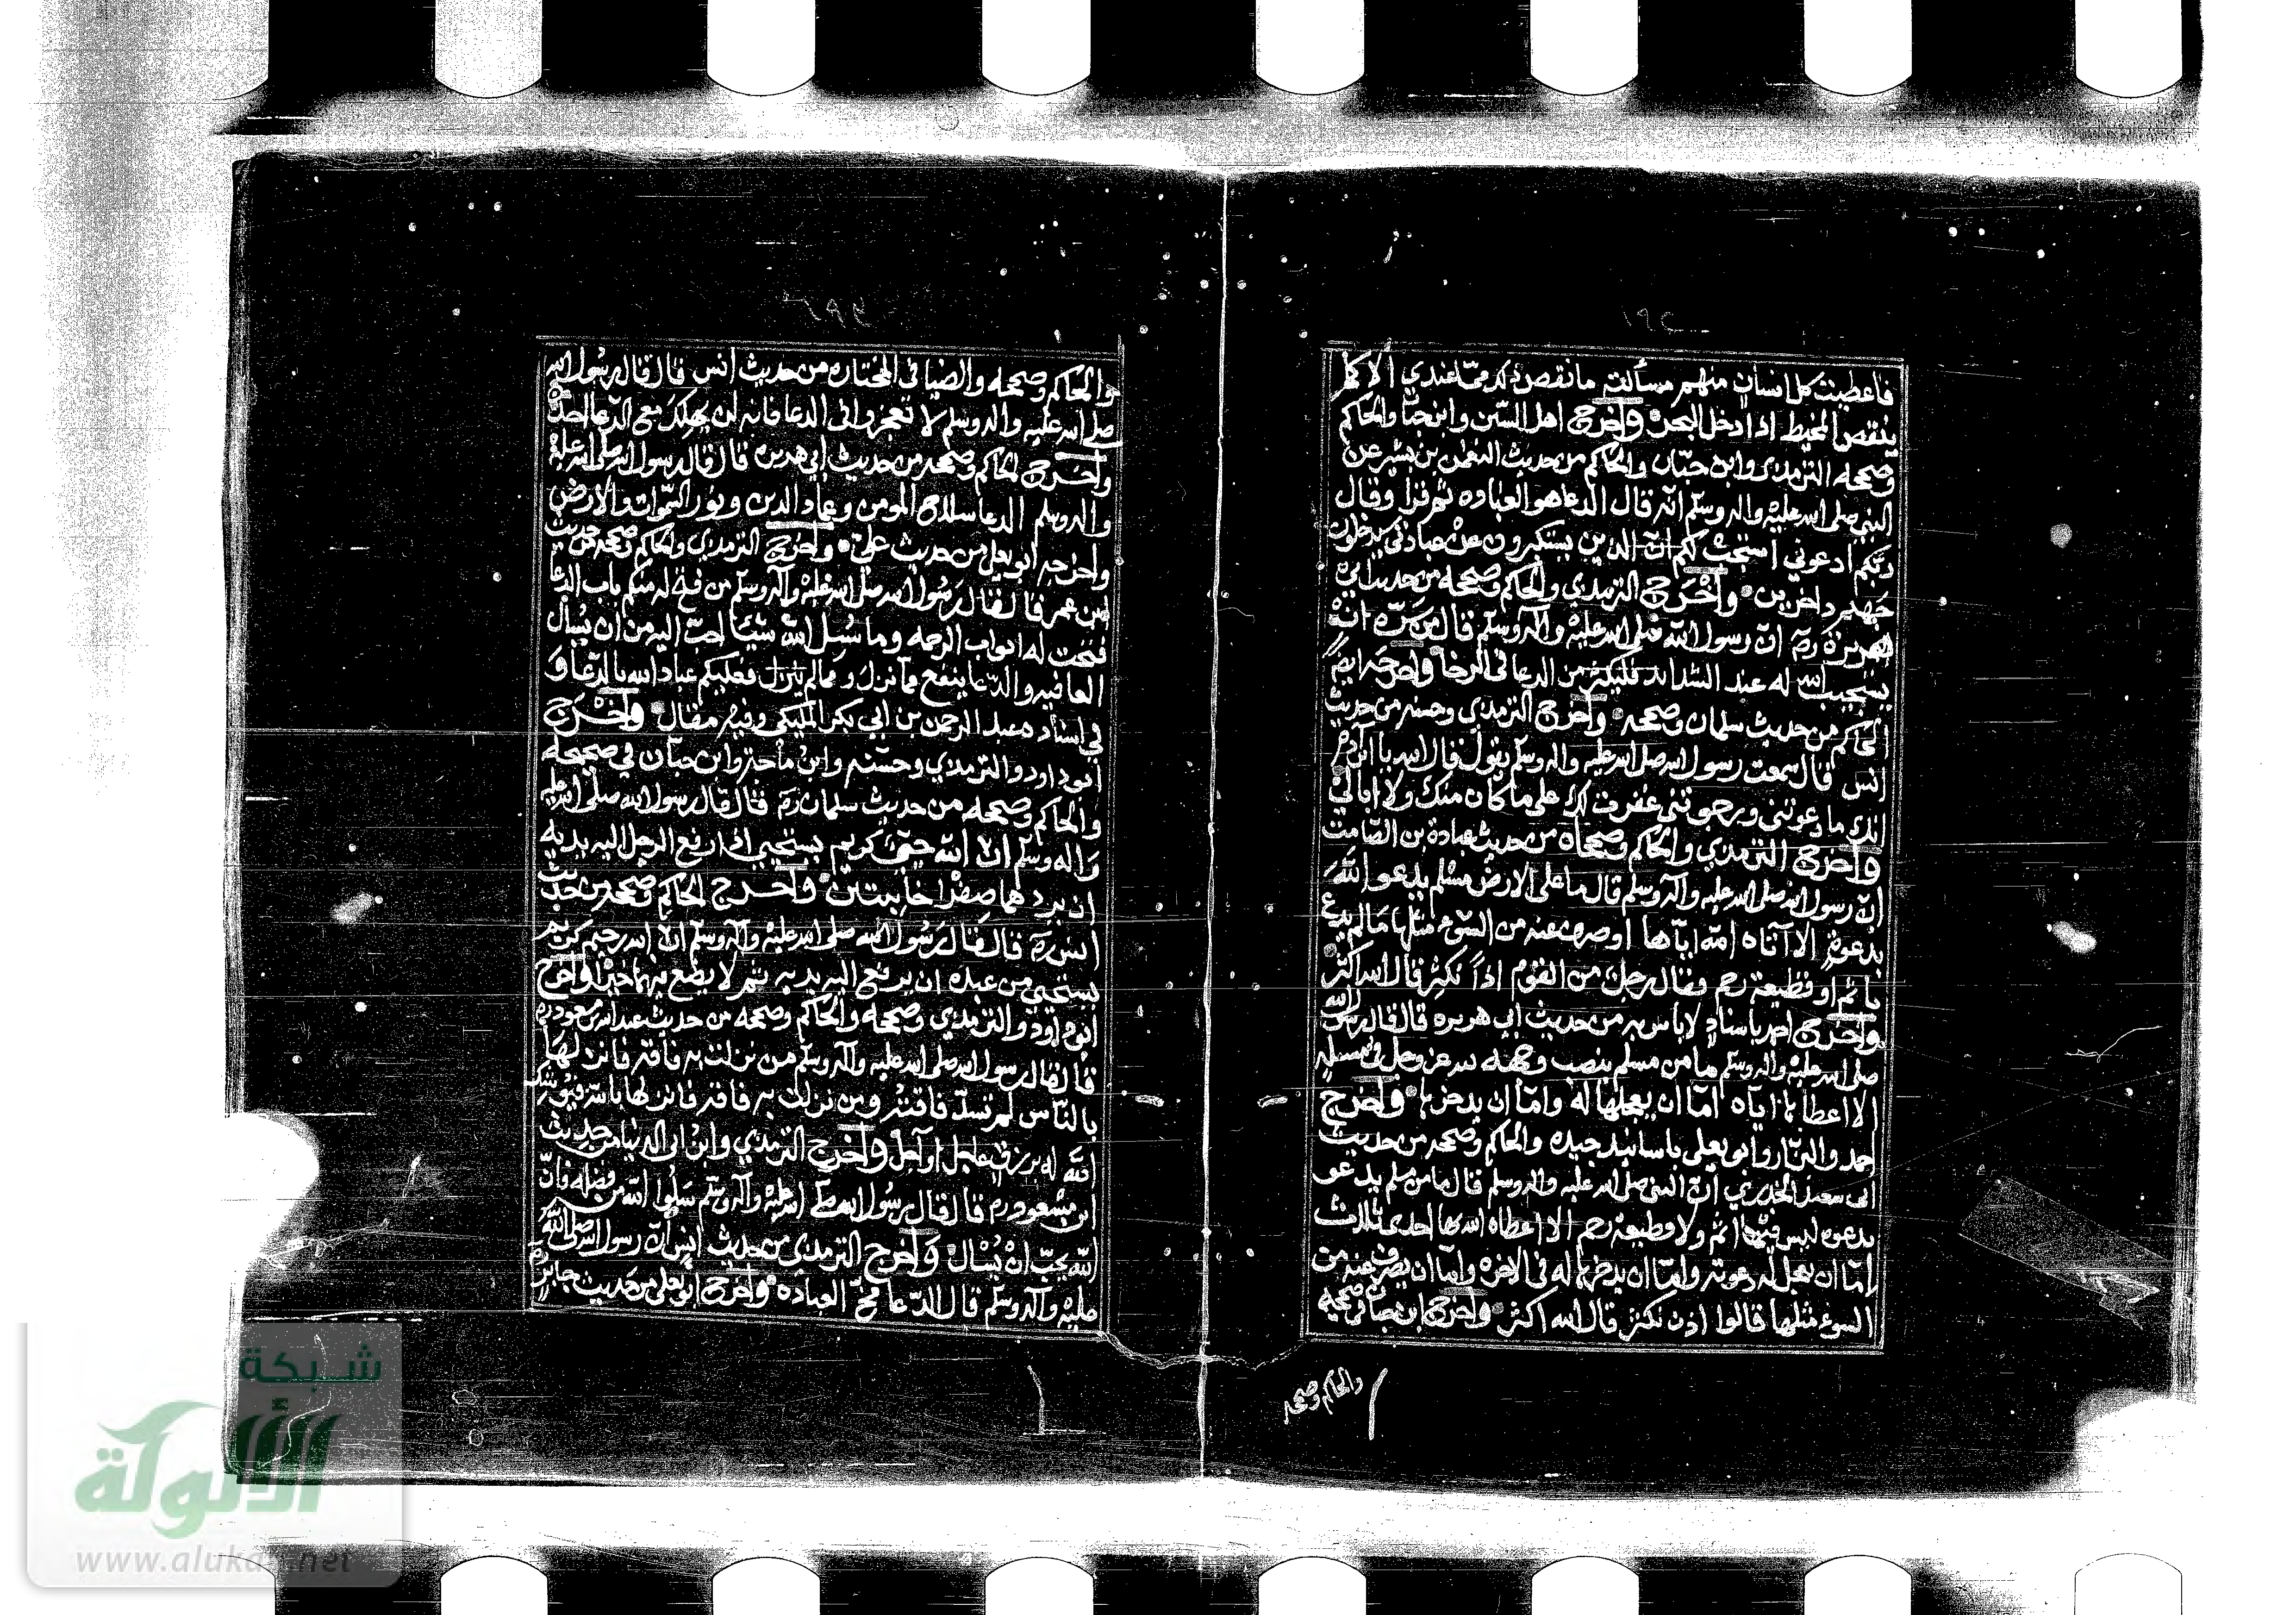 ١٩٤
فاعطيت كل انسان منهم مسألته ما نقص ذلك مما عندي الا كما
ينقص المخيط اذا ادخل البحر واخرج اهل السنن وابن حبان والحاكم
وصححه الترمذي وابن حبان والحاكم من حديث النعمن بن بشير عن
النبي صلى الله عليه واله وسلم انه قال الدعا هو العباده ثم قرا وقال
ربكم ادعوني استجب لكم ان الذين يستكبرون عن عبادتي يدخلون
جهنم داخرين واخرج الترمذي والحاكم وصححه من حديث ابي
هريرة رم ان رسول الله صلى الله عليه وآله وسلم قال من سره ان
يستجيب الله له عند الشدائد فليكثر من الدعا في الرخا واخرجه ايضا
الحاكم من حديث سلمان وصححه واخرج الترمذي وحسنه من حديث
انس قال سمعت رسول الله صلى الله عليه واله وسلم يقول قال الله يا ابن آدم
انك ما دعوتني ورجوتني غفرت لك على ما كان منك ولا ابالي
واخرج الترمذي والحاكم وصححاه من حديث عبادة بن الصامت
ان رسول الله صلى الله عليه وآله وسلم قال ما على الارض مسلم يدعو الله
بدعوة الا آتاه الله اياها او صرف عنه من السوء مثلها ما لم يدع
باثم او قطيعة رحم فقال رجل من القوم اذاً نكثر قال الله اكثر
واخرج احمد باسناد لا باس به من حديث ابي هريره قال قال رسول الله
صلى الله عليه واله وسلم ما من مسلم ينصب وجهه لله عز وجل في مسئله
الا اعطاها اياه اما ان يعجلها له واما ان يدخرها واخرج
احمد والبزار وابو يعلى باسانيد جيده والحاكم وصححه من حديث
ابي سعيد الخدري ان النبي صلى الله عليه واله وسلم قال ما من مسلم يدعو
بدعوه ليس فيها اثم ولا قطيعة رحم الا اعطاه الله بها احدى ثلاث
اما ان يعجل له دعوته واما ان يدخرها له في الاخره واما ان يصرف عنه من
السوء مثلها قالوا اذن نكثر قال الله اكثر واخرج ابن حبان في صحيحه
والحاكم وصححه
والحاكم وصححه والضيا في المختاره من حديث انس قال قال رسول الله
صلى الله عليه واله وسلم لا تعجزوا في الدعا فانه لن يهلك مع الدعا احد
واخرج الحاكم وصححه من حديث ابي هريره قال قال رسول الله صلى الله عليه
واله وسلم الدعا سلاح المومن وعماد الدين ونور السموات والارض
واخرجه ابو يعلى من حديث علي واخرج الترمذي والحاكم وصححه من حديث
ابن عمر قال قال رسول الله صلى الله عليه وآله وسلم من فتح له منكم باب الدعا
فتحت له ابواب الرحمه وما سُئل الله شيئا احب اليه من ان يسأل
العافيه والدعا ينفع مما نزل ومما لم ينزل فعليكم عباد الله بالدعا و
في اسناده عبد الرحمن بن ابي بكر المليكي وفيه مقال واخرج
ابو داود والترمذي وحسنه وابن ماجة وابن حبان في صحيحه
والحاكم وصححه من حديث سلمان رم قال قال رسول الله صلى الله عليه
واله وسلم ان الله حيي كريم يستحيي اذا رفع الرجل اليه يديه
ان يردهما صفرا خايبتين واخرج الحاكم وصححه من حديث
انس رم قال قال رسول الله صلى الله عليه وآله وسلم ان الله رحيم كريم
يستحيي من عبده ان يرفع اليه يديه ثم لا يضع فيهما خيرا واخرج
ابو داود والترمذي وصححه والحاكم وصححه من حديث عبد الله بن مسعود رم
قال قال رسول الله صلى الله عليه وآله وسلم من نزلت به فاقه فانزلها
بالناس لم تسد فاقته ومن نزلت به فاقه فانزلها بالله فيوشك
الله له برزق عاجل او آجل واخرج الترمذي وابن ابي الدنيا من حديث
ابن مسعود رم قال قال رسول الله صلى الله عليه وآله وسلم سلوا الله من فضله فان
الله يحب ان يُسأل واخرج الترمذي من حديث انس ان رسول الله صلى الله
عليه وآله وسلم قال الدعا مخ العباده واخرج ابو يعلى من حديث جابر
شبكة
الألوكة
www.alukah.net